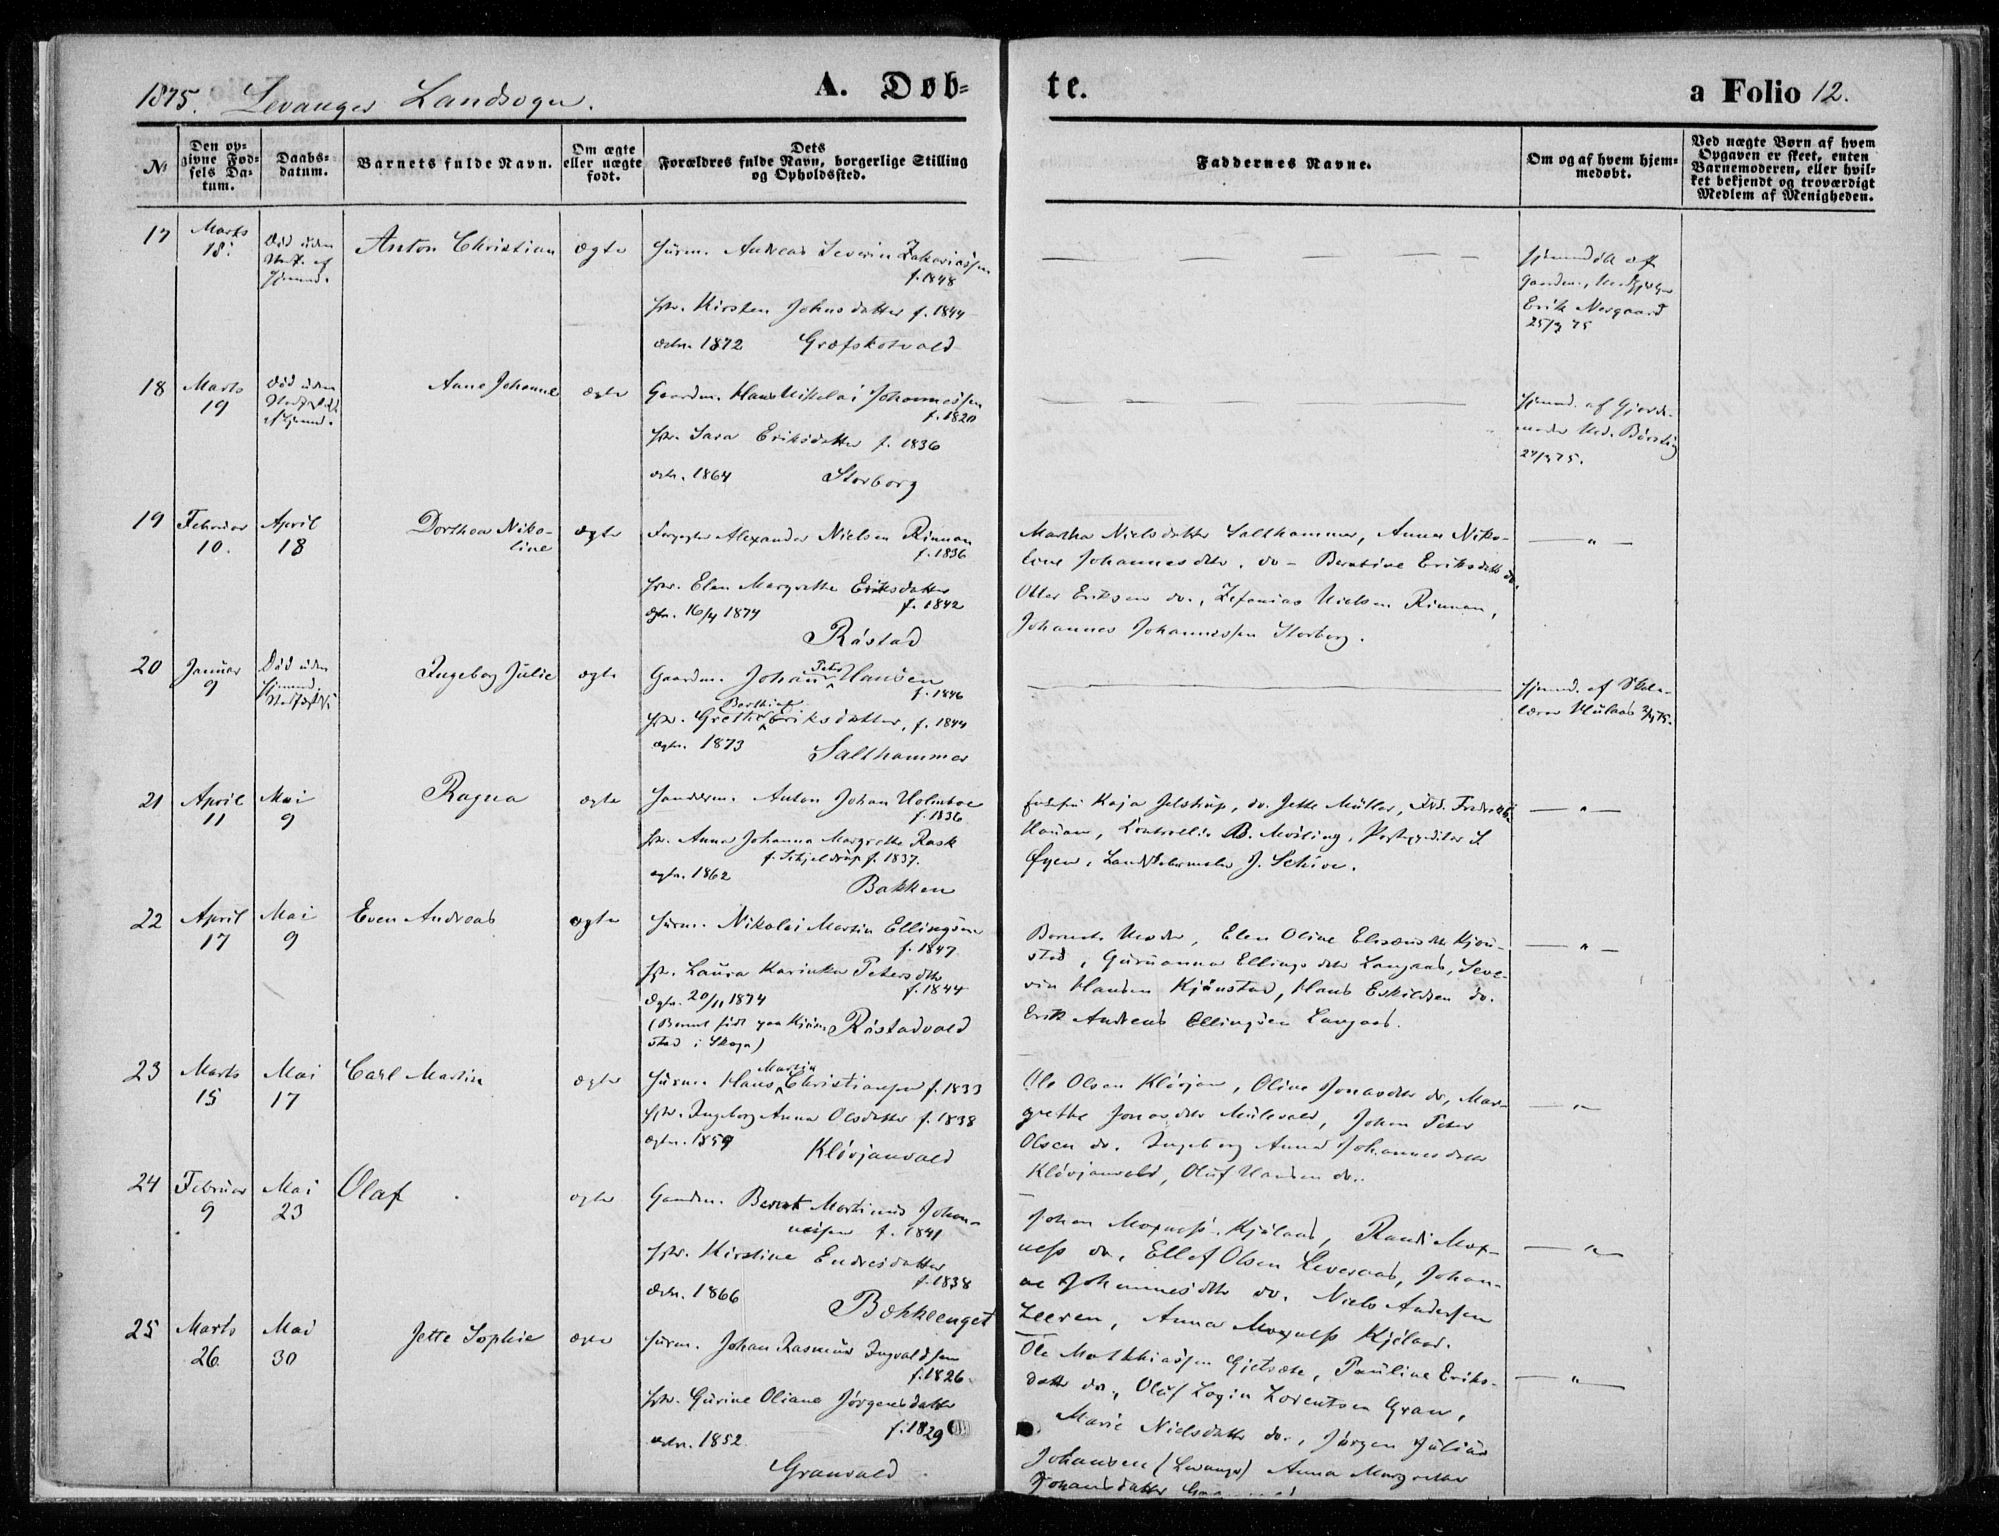 1875. Levanger Landsogn.
A. Døb-
te.
a Folio 12.
No
Den op-
givne Fød-
sels Da-
tum.
Daabs-
datum.
Barnets fulde Navn.
Om ægte
eller uægte
født.
Dets
Forældres fulde Navn, borgerlige Stilling
og Opholdssted.
Faddernes Navne.
Om og af hvem hjem-
medøbt.
Ved uægte Børn af hvem
Opgaven er skeet, enten
Barnemoderen, eller hvil-
ket bekjendt og troværdigt
Medlem af Menigheden.
17
Marts
18.
Død uden
Stadf. af
Hjemmed.
Anton Christian
ægte
Huusm. Andreas Severin Zakariassen
f. 1848
Hstr. Kirsten Johnsdatter f. 1844
egtv. 1872 Græfskotvald
Hjemmedøbt af
Erik Nesgaard
25/3 75
18
Marts
19
Død uden
Stadfæstelse
af Hjemmed.
Anne Johanne
ægte
Gaardm. Hans Nikolai Johannessen
f. 1820
Hstr. Sara Eriksdatter f. 1836
egtv. 1864 Storborg
Hjemmed. af Gjorde-
moder Mad. Börsting
24/3 75.
19
Februar
10.
April
18
Dorthea Niko-
line
ægte
Forpagter Alexander Nielsen Rinnan
f. 1836
Hstr. Elen Margrethe Eriksdatter
f. 1842
egtv. 16/4 1874
Råstad
Martha Nielsdatter Salthammer, Anna Niko-
line Johannesdtr. do - Berntine Eriksdatter do.
Otter Eriksen do., Zefanias Nielsen Rinnan,
Johannes Johannessen Storborg.
— " —
20
Januar
9
Død uden
Hjemmed.
Stadfæst.
Ingeborg Julie
ægte
Gaardm. Johan Peter Hansen
f. 1846
Hstr. Grethe Eriksdatter, f. 1844
egtv. 1873
Salthammer
Hjemmed. af Skole-
lærer Mulaas
21
April
11
Mai
9
Ragna
ægte
Handelsm. Anton Johan Holmboe
f. 1836
Hstr. Anna Johanna Margrethe Rask
f. Schjeldrup f. 1837.
egtv. 1862
Bakken
Frøken Kaja Jelstrup, do. Jette Müller,
B. Møsling, Postexpeditør
Øyen, J. Schive.
— " —
22
April
17
Mai
9
Even Andreas
ægte
Huusm. Nikolai Martin Ellingsen
f. 1847.
Hstr. Laura Karinka Petersdtr
f. 1844
egtv. 20/11 1874
(Barnet født paa Kjøn-
stad i Skogn)
Råstadvald
Barnets Moder, Elen Oline Elisæusdtr Kjøn-
stad, Guruanna Ellingsdtr Langaas, Seve-
rin Hansen Kjönstad, Hans Eskildsen do.
Erik Andreas Ellingsen Langaas.
— " —
23
Marts
15
Mai
17
Carl Martin
ægte
Huusm. Hans Martin Christiansen f. 1833
Hstr. Ingeborg Anna Olsdatter f. 1838
egtv. 1859
Kløvjanvald
Ole Olsen Kløvjan, Oline Jonasdtr do, Mar-
grethe Jonasdtr Mulevald, Johan Peter
Olsen do. Ingeborg Anna Johannesdatter
Kløvjanvald, Oluf Hansen do..
— " —
24
Februar
9
Mai
23
Olaf
ægte
Gaardm. Bernt Martinus Johan-
nessen f. 1841
Hstr. Kirstine Endresdatter
f. 1838
egtv. 1866
Bækkeenget
Johan Moxness Kjølaas, Randi Mox-
ness do, Ellef Olsen Leveraas, Johan-
ne Johannesdtr do. Niels Andersen
Leeren, Anna Moxness Kjølaas.
— " —
25
Marts
26
Mai
30
Jette Sophie
ægte
Huusm. Johan Rasmus Ingvaldsen
f. 1826.
Hstr. Gurine Oliane Jørgensdatter
f. 1829
egtv. 1852
Granvald
Ole Mathiassen Gjetsæte, Pauline Eriks-
datter do., Oluf Login Lorentsen Gran,
Marie Nielsdatter do., Jørgen Julius
Johansen (Levanger) Anna Margrethe
Johansdatter
— " —